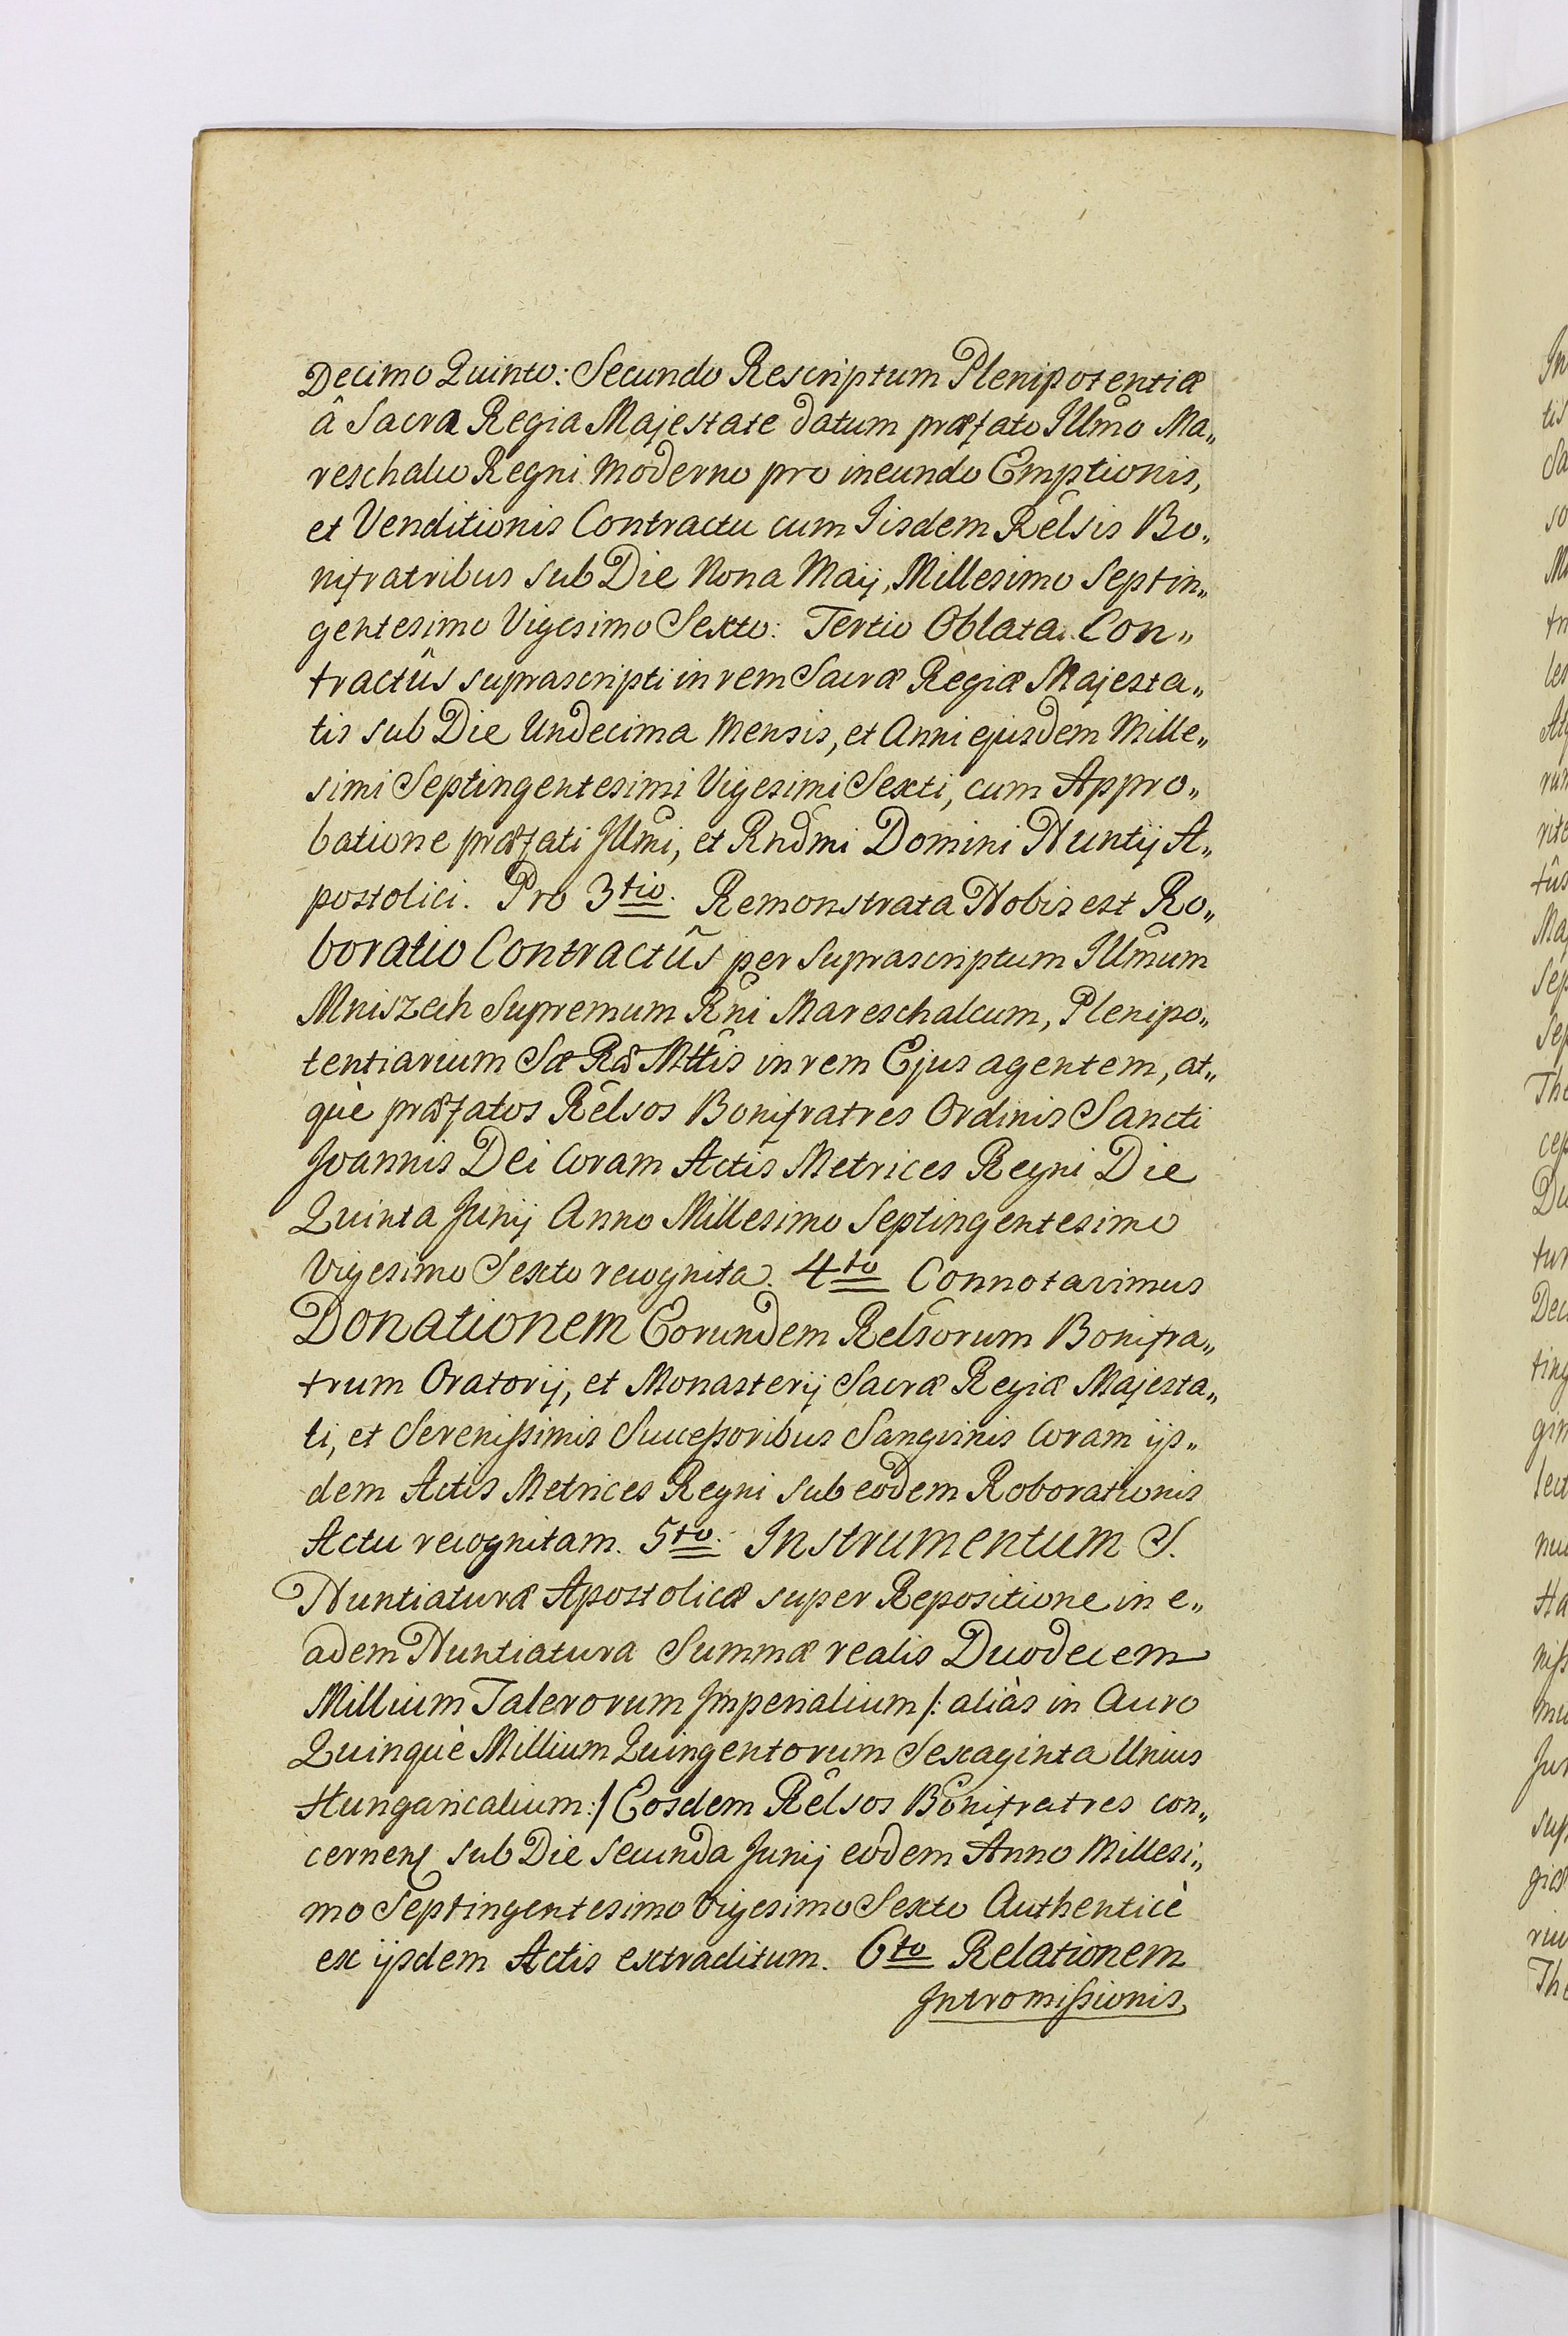 Decimo Quinto: Secundo Rescriptum Plenipotentiæ
â Sacra Regia Majestate datum præfato Illmo Ma„
reschalco Regni moderno pro ineundo Emptionis,
et Venditionis Contractu cum Iisdem Rēlsis Bo„
nifratribus sub Die Nona Maij, Millesimo Septin„
gentesimo Vigesimo Sexto: Tertio Oblata. Con„
tractûs suprascripti in rem Sacræ Regiæ Majesta„
tis sub Die Undecima Mensis, et Anni ejusdem Mille„
simi Septingentesimi Vigesimi Sexti, cum Appro„
batione præfati Illmi, et Rndmi Domini Nuntij A„
postolici. Pro 3tio. Remonstrata Nobis est Ro„
boratio Contractûs per Suprascriptum Illmum
Mniszech Supremum Rni Mareschalcum, Plenipo„
tentiarium Sæ Ræ Mttis in rem Ejus agentem, at„
què præfatos Rēlsos Bonifratres Ordinis Sancti
Joannis Dei Coram Actis Metrices Regni Die
Quinta Junij Anno Millesimo Septingentesimo
Vigesimo Sexto recognita. 4to Connotavimus
Donationem Eorundem Relsorum Bonifra„
trum Oratorij, et Monasterij Sacræ Regiæ Majesta„
ti, et Serenissimis Successoribus Sanguinis Coram ijs„
dem Actis Metrices Regni sub eodem Roborationis
Actu recognitam. 5to. Instrumentum S.
Nuntiaturæ Apostolicæ super Repositione in e„
adem Nuntiatura Summæ realis Duodecem
Millium Talerorum Imperialium /: aliàs in Auro
Quinquè Millium Quingentorum Sexaginta Unius
Hungaricalium :/ Eosdem Rēlsos Bonifratres con„
cernens sub Die secunda Junij eodem Anno Millesi„
mo Septingentesimo Vigesimo Sexto Authenticè
ex ijsdem Actis extraditum. 6to Relationem
Intromissionis,